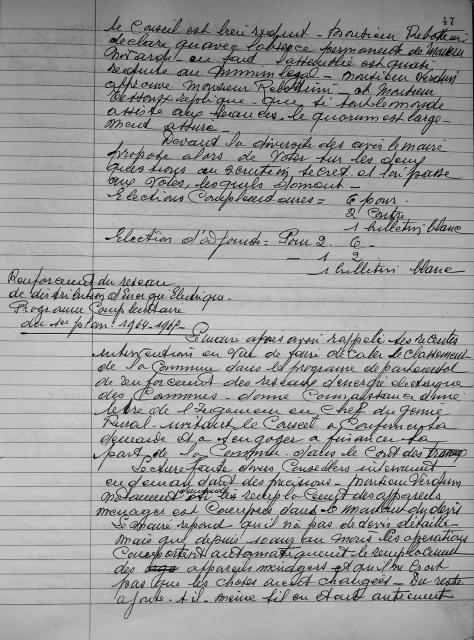 47
le Conseil est bien reduit - Monsieur Rebottini
déclare qu'avec l'absence permanente de Monsieur
en fait l'assemblée est quasi
reduite au minimum legal - Monsieur Verdun
approuve Monsieur Rebottini - et Monsieur
replique que si tout le monde
assiste aux séances, le quorum est large-
ment assuré -
Devant la diversité des avis le maire
propose alors de voter sur les deux
questions au scrutin secret et l'on passe
aux votes, lesquels donnent -
Elections Complémentaires = 6 pour
2 Contre
1 bulletin blanc
Election d'adjoints = Pour 2. 6 -
- 1 2
1 bulletin blanc
Renforcement du reseau
de distribution d'Energie Electrique.
Programme Complémentaire
du 1964-1965 -
Le maire après avoir rappelé ses recentes
interventions en vue de faire le classement
de la Commune dans le programme departemental
de renforcement des reseaux d'énergie electrique
des Communes - donne connaissance d'une
lettre de l'Ingenieur en Chef du Genie
Rural - invitant le Conseil a Confirmer sa
demande et a s'engager a financer sa
part de la Commune dans le Cout des travaux
Lecture faite divers Conseillers interviennent
en demandant des precisions - Monsieur Verdun
notamment demande si le remplacement des appareils
menager est Compris dans le montant du devis
Le Maire repond qu'il n'a pas de devis détaillé
mais que depuis 10 ans au moins les operations
Comportent automatiquement le remplacement
des appareils ménagers et qu'il ne croit
pas que les choses aient changées - Du reste
ajoute-t-il - même s'il en etait autrement